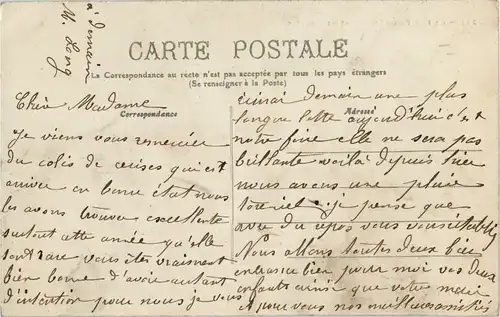 à demain
M. Long
CARTE POSTALE
La Correspondance au recto n'est pas acceptée par tous les pays étrangers
(Se renseigner à la Poste)
Chère Madame
Correspondance
Je viens vous remercier
du colis de cerises qui est
arriver en bone état nous
les avons trouver excellente
surtout cette année qu'elle
sont rare vous ites vraiment
bien bonne d'avoir autant
d'intention pour nous je vous
demain une plus
longue lettre aujourd'hui c'est
Adresse
notre foire elle ne sera pas
brillante voilà depuis hier
nous avons une pluie
torenciel je pense que
avec du repos vous
Nous allons toutes deux bien
bien pour moi vos deux
enfants ainsi que votre mari
et pour vous nos meilleures amitiés